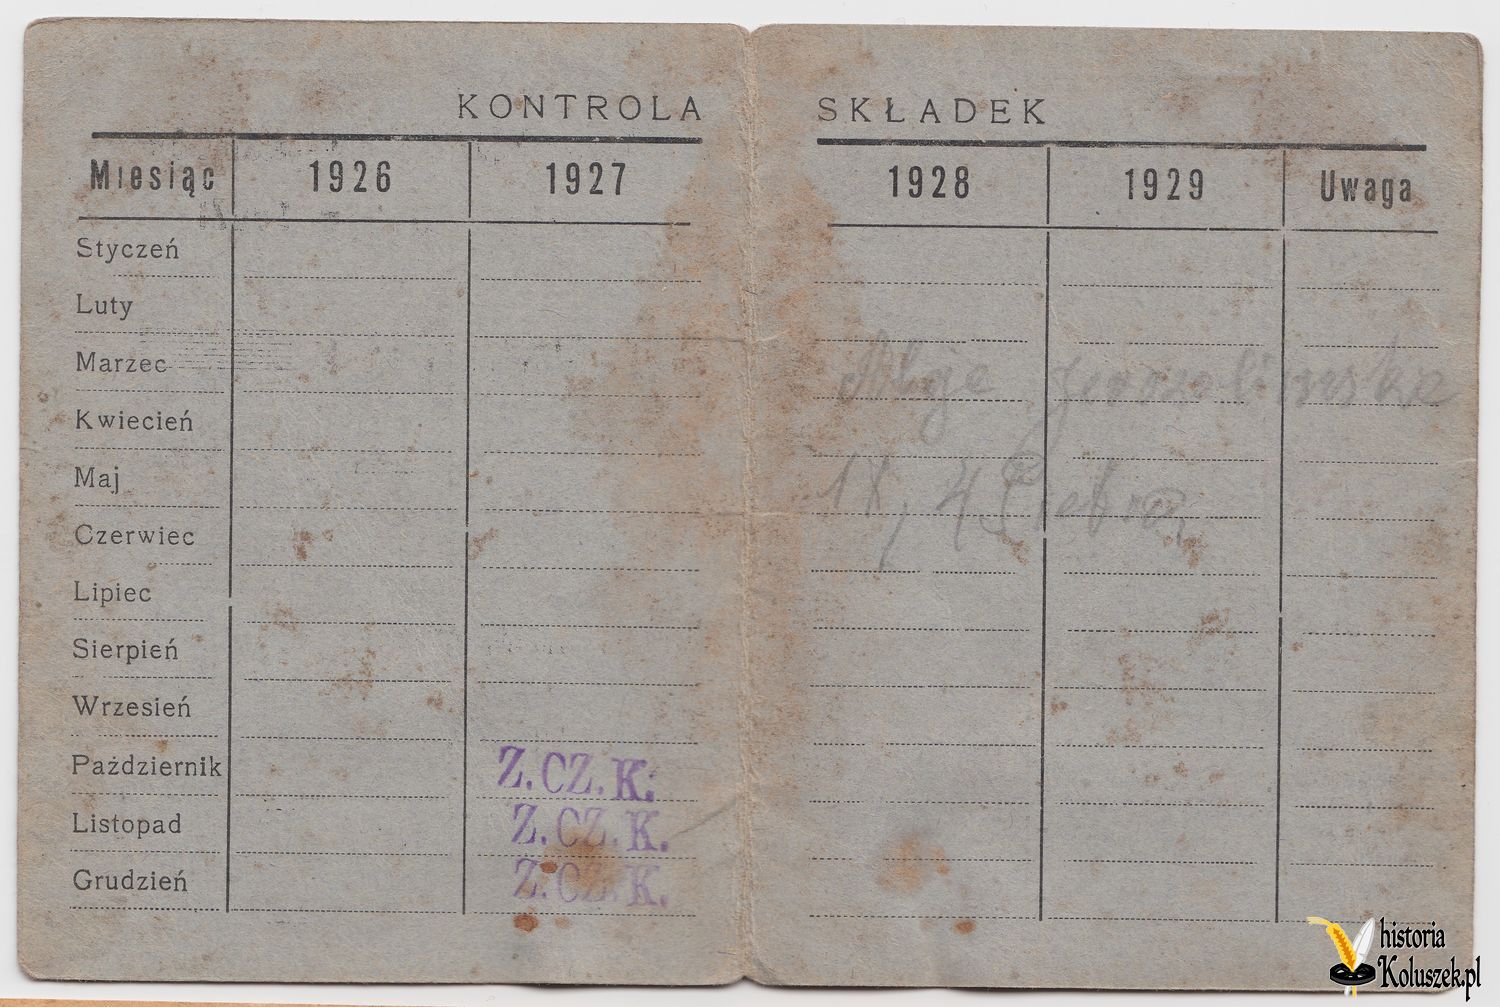 KONTROLA SKŁADEK
Miesiąc 1926 1927 1928 1929 Uwaga
Styczeń
Luty
Marzec
Kwiecień
Maj
Czerwiec
Lipiec
Sierpień
Wrzesień
Październik Z.CZ.K.
Listopad Z.CZ.K.
Grudzień Z.CZ.K.
historia
Koluszek.pl